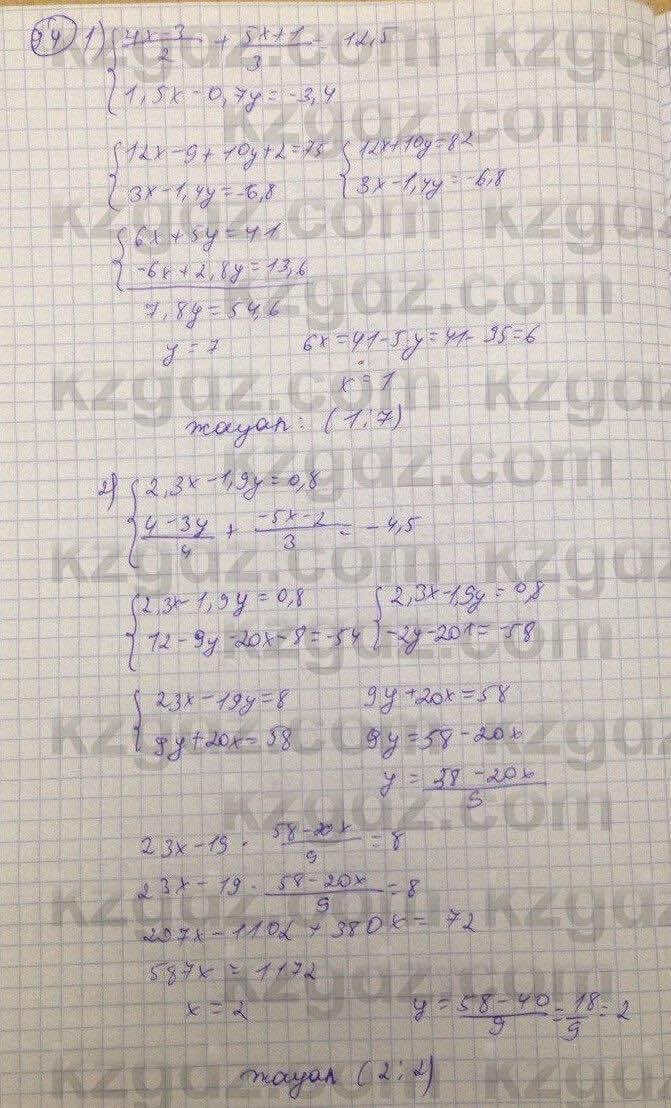 94 1) { (4x-3)/2 + (5x+1)/3 = 12,5
1,5x-0,7y=-3,4
{ 12x-9+10y+2=75 { 12x+10y=82
3x-1,4y=-6,8 3x-1,4y=-6,8
{ 6x+5y=41
-6x+2,8y=13,6
7,8y=54,6
y=7 6x=41-5y=41-35=6
x=1
жауап: (1;7)
2) { 2,3x-1,9y=0,8
(4-3y)/4 + (-5x-2)/3 = -4,5
{ 2,3x-1,9y=0,8 { 2,3x-1,9y=0,8
12-9y-20x-8=-54 = -58
{ 23x-19y=8 9y+20x=58
9y+20x=58 9y=58-20x
y = (58-20x)/9
23x-19· (58-20x)/9 =8
23x-19· (58-20x)/9 =8
207x-1102+380x=72
587x=1172
x=2 y= (58-40)/9 = 18/9 =2
жауап (2;2)
kzgdz.com